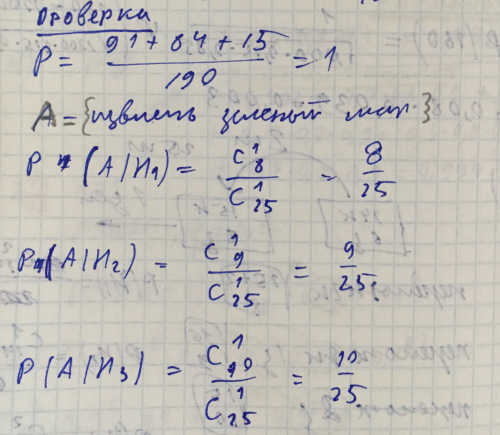 Проверка
P = (91 + 84 + 15) / 190 = 1
A = {извлечь зеленый шар}
P (A/H₁) = C¹₈ / C¹₂₅ = 8/25
P (A/H₂) = C¹₉ / C¹₂₅ = 9/25
P (A/H₃) = C¹₁₀ / C¹₂₅ = 10/25